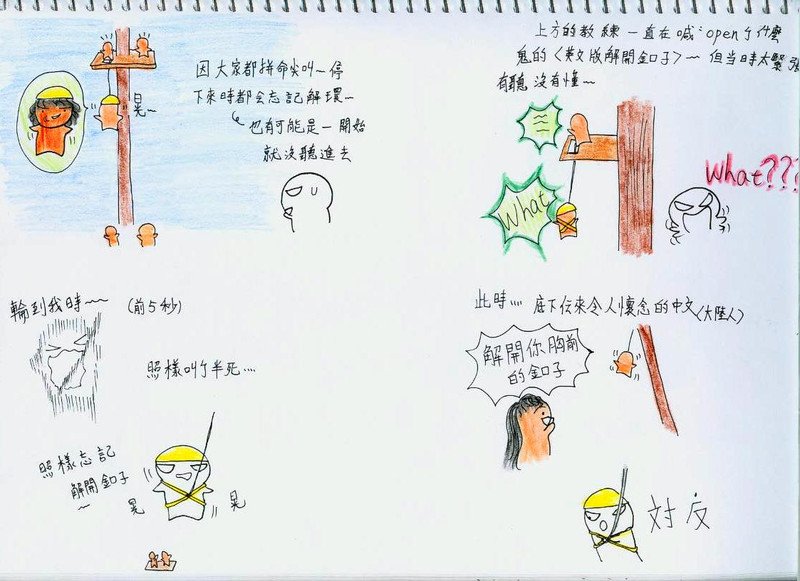 因大家都拼命尖叫~停
下來時都会忘記解環~
也有可能是一開始
就沒聽進去
晃~
上方的教練一直在喊:openㄅ什麼
鬼的〈英文版解開釦子〉~但当時太緊張
有聽沒有懂~
What
What???
輪到我時~~~ (前5秒)
照樣叫ㄅ半死....
照樣忘記
解開釦子
~
晃
晃
此時.... 底下伝來令人懷念的中文(大陸人)
解開你胸前
的釦子
対反